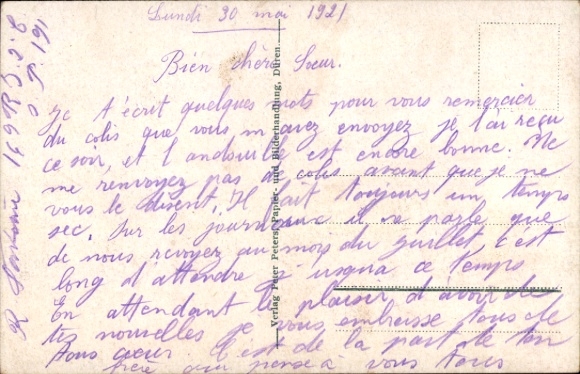 Lundi 30 mai 1921
Bien chère Sœur.
Je t'écrit quelques mots pour vous remercier
du colis que vous m'avez envoyez je l'ai reçu
ce soir, et l'andouille est encore bonne. Ne
me renvoyez pas de colis avant que je ne
vous le disent, Il fait toujours un temps
sec, Sur les journeaux il se parle que
de nous revoyez au mois du juillet, c'est
long d'attendre jusqua ce temps
En attendant le plaisir d'avoir de
tes nouvelles je vous embrasse tous de
tous cœur. C'est de la part de ton
frère qui pense à vous tous
Verlag Peter Peters, Papier- und Bilderhandlung, Düren.